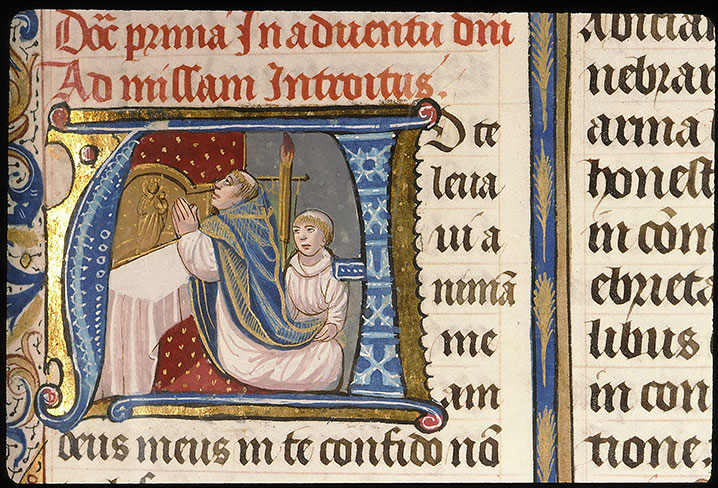 Dōc prima In aduentu dni
Ad missam Introitus.
AD te
leua
ui a
nimā
me
am
deus meus in te confido nō
Abicia
nebrar
arma
honest
in cōm
ebrieta
libus
in con
tione: